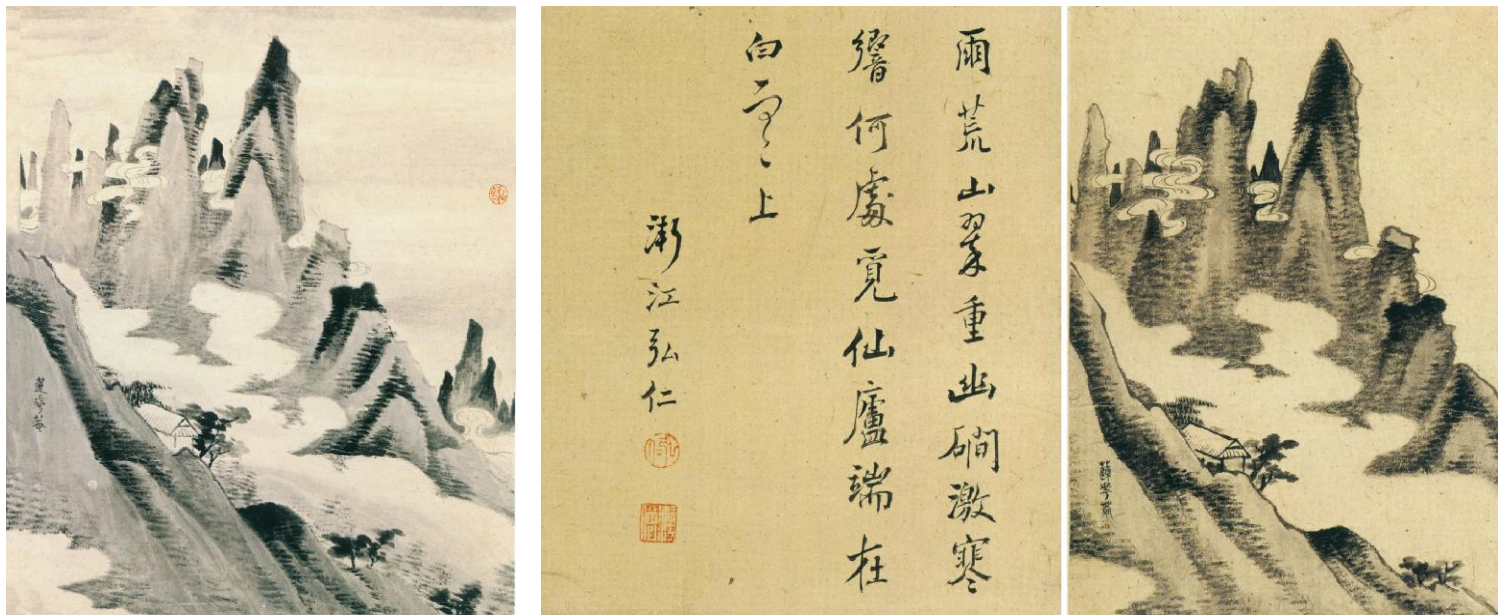 蓮華菴
雨荒山翠重幽磵激寒
響何處覓仙廬端在
白雲上
漸江弘仁